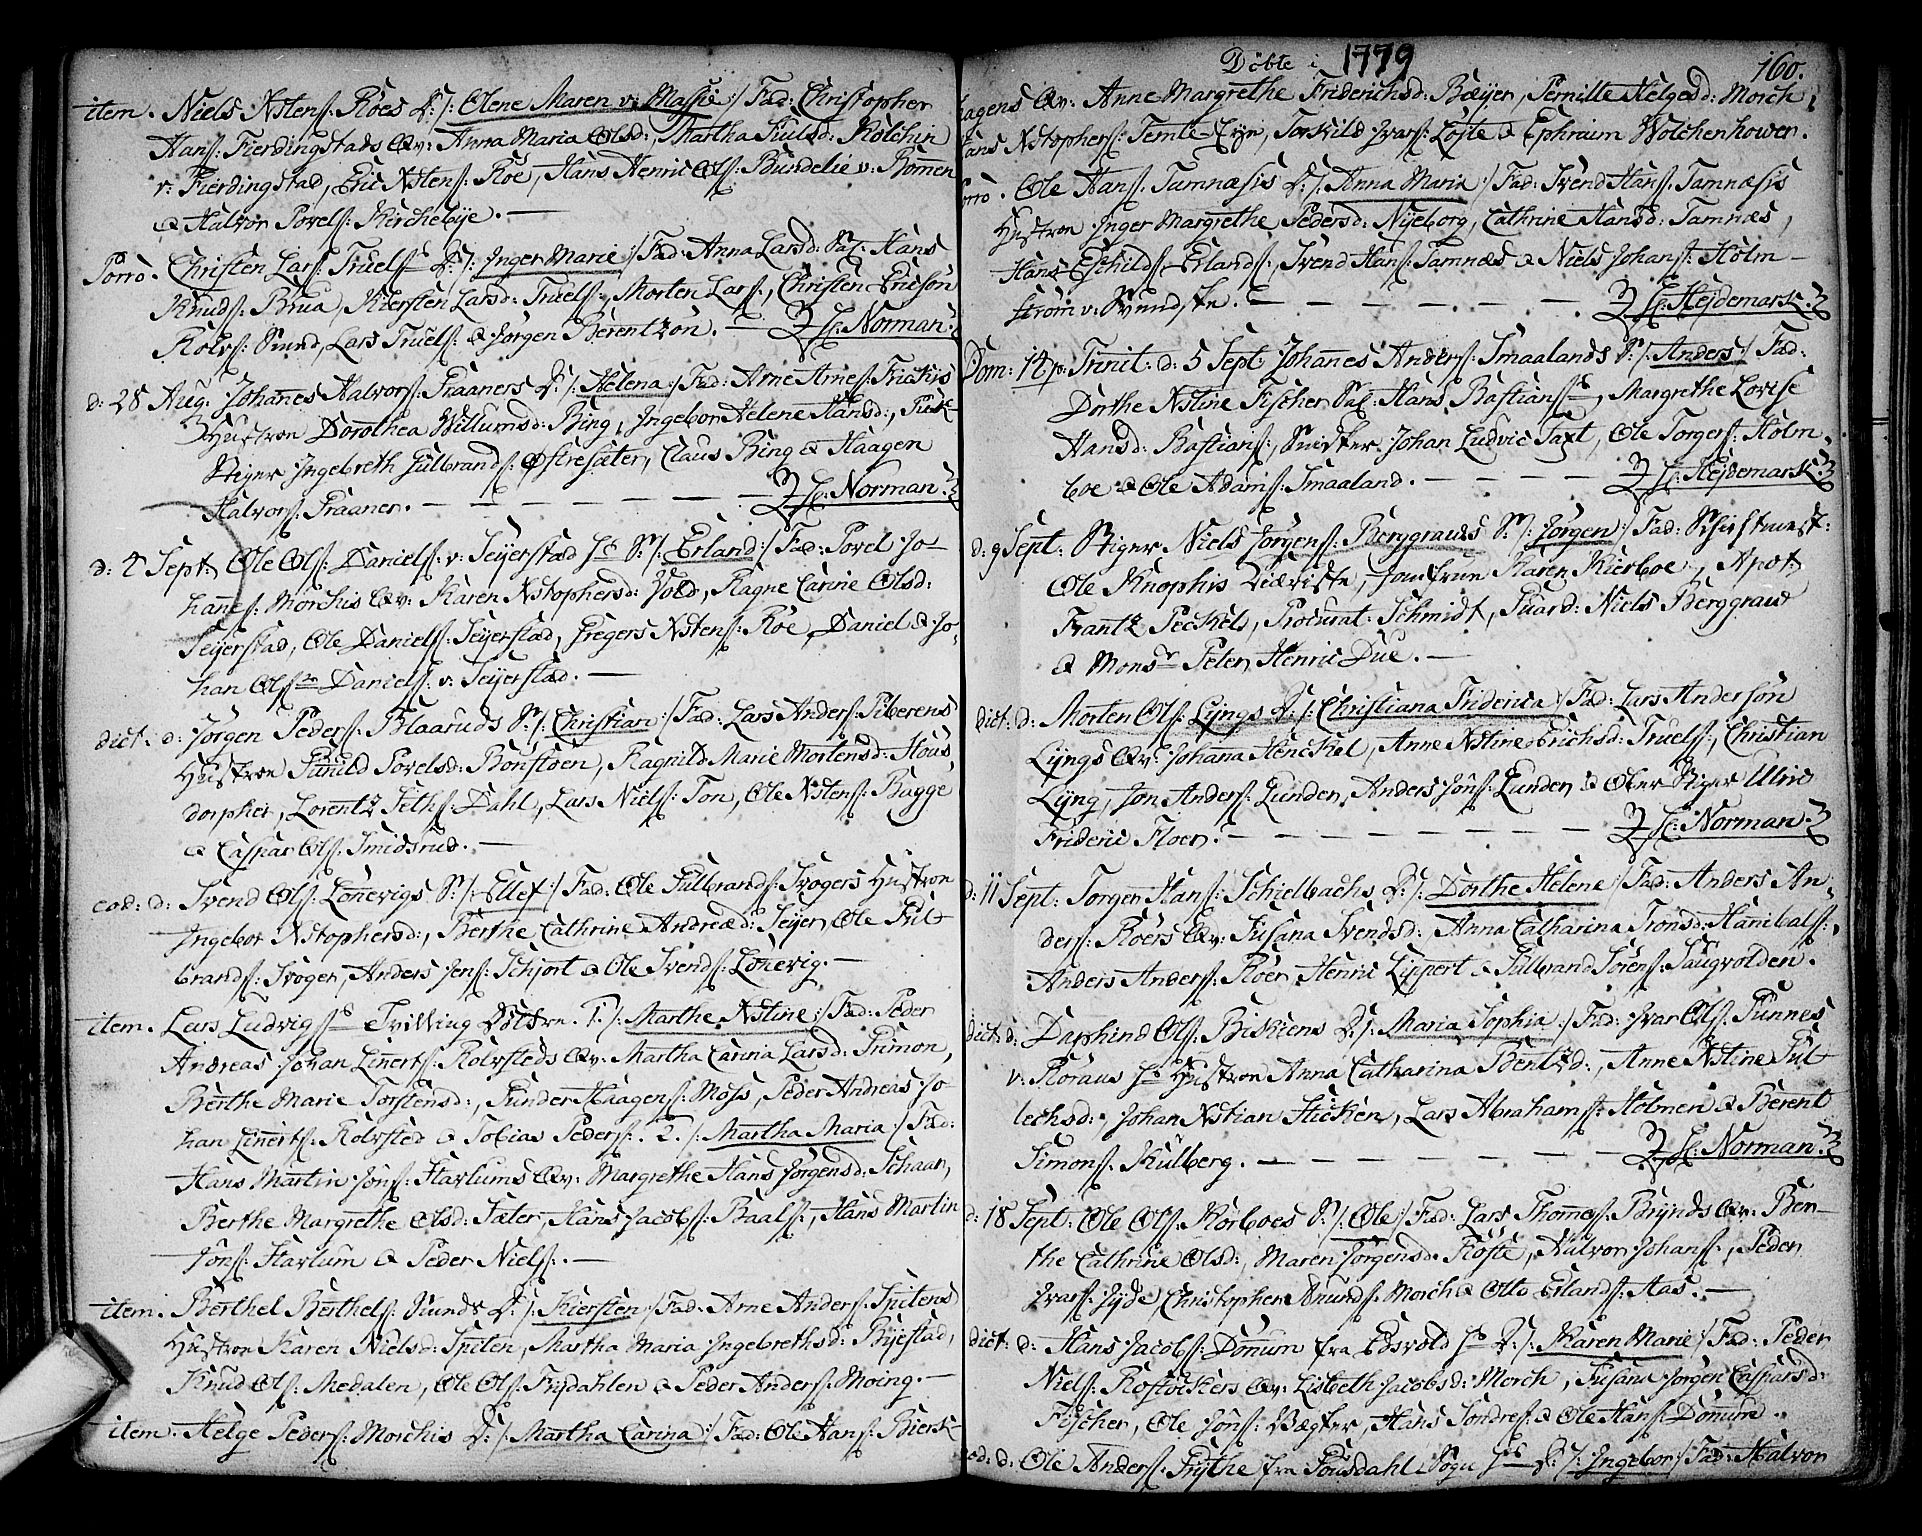 item. Niels Xstens: Roes D: /: Olene Maren v: Massie :/ Fad: Christopher
Hans: Fierdingstads Qv: Anna Maria Olsd:, Martha Juulsd: Kolchin
v: Fierdingstad, Eric Xstens: Roe, Hans Henric Ols: Bundelie v: Bommen
& Halvor Povels: Kirchebye. —
Porrò. Christen Lars: Truels D: /: Inger Marie :/ Fad: Anna Larsd: Sal: Hans
Knuds: Brua, Kiersten Larsd: Truels:, Morten Lars:, Christen Ericson
Rolvs: Sund, Lars Truels: & Jørgen Berentzøn. — H: Norman.
d: 28 Aug: Johannes Halvors: Praaners D: /: Helena :/ Fad: Arne Arnes: Frickiis
Hustroe Dorothea Willumsd: Bing, Ingebor Helene Hansd:,
Stiger Ingebreth Gulbrands: Østresæter, Claus Bing & Haagen
Halvors: Praaner. — H: Norman.
d: 4 Sept: Ole Ols: Daniels: v: Seyerstad S: /: Erland :/ Fad: Povel Jo-
hannes: Morchis Qv: Karen Xstophersd: Vold, Ragne Carine Olsd:
Seyerstad, Ole Daniels: Seyerstad, Gregers Xstens: Roe, Daniel & Jo-
han Ols: Daniels: v: Seyerstad. —
dict: d: Jørgen Peders: Blaaruds S: /: Christian :/ Fad: Lars Anders: Fiberens
Hustroe Gunild Povelsd: Bonstøen, Ragnild Marie Mortensd: Hous,
dorpher, Lorentz Seths: Dahl, Lars Niels: Ton, Ole Xstens: Bagge
& Caspar Ols: Smidsrud. —
eod: d: Svend Ols: Lonevigs S: /: Ellef :/ Fad: Ole Gulbrands: Kroger Hustroe
Ingebor Xstophersd:, Berthe Cathrine Andreæd: Seyer, Ole Gul-
brands: Kroger, Anders Jens: Schjort & Ole Svends: Lonevig. —
item. Lars Ludvigs Tvilling Døttre. 1. /: Marthe Xstine :/ Fad: Peder
Andreas Johan Linerts: Rolvsteds Qv: Martha Carina Larsd: Grimon,
Berthe Marie Torstensd:, Gunder Haagens: Moss, Peder Andreas Jo-
han Linerts: Rolvsted & Tobias Peders: 2. /: Martha Maria :/ Fad:
Hans Martin Jons: Harlums Qv: Margrethe Hans Jørgensd: Schaar,
Berthe Margrethe Olsd: Sæter, Hans Jacobs: Baals:, Hans Martin
Jons: Harlum & Peder Niels:. —
item. Berthel Berthels: Sunds D: /: Kiersten :/ Fad: Arne Anders: Spitens
Hustroe Karen Nielsd: Spiten, Martha Maria Ingebrethsd: Byestad,
Knud Ols: Medalen, Ole Ols: Frydahlen & Peder Anders: Moing. —
item. Helge Peders: Morchis D: /: Martha Carina :/ Fad: Ole Hans: Bierk-
Døbte i 1779 160.
hagens Qv: Anne Margrethe Friderichsd: Bæyer, Pernille Helgesd: Morch,
Hans Xstophers: Temte Eyn, Torskild Ivars: Løyte & Ephraim Wolchenhower.
Porrò. Ole Hans: Tamnæsis D: /: Anna Maria :/ Fad: Svend Hans: Tamnæsis
Hustroe Inger Margrethe Pedersd: Nyeborg, Cathrine Hansd: Tamnæs,
Hans Eschilds: Erlands:, Svend Hans: Tamnæs & Niels Johans: Holm-
strøm v: Svundske. — H: Heidemark.
Dom: 14 p: Trinit: d: 5 Sept: Johannes Anders: Smaalands S: /: Anders :/ Fad:
Dorthe Xstine Fischer Sal: Hans Bastians:, Margrethe Lovise
Hansd: Bastians:, Snedker Johan Ludvic Saxt, Ole Torgers: Holm
boe & Ole Adams: Smaaland. — H: Heidemark.
d: 9 Sept: Stiger Niels Jørgens: Berggrauds S: /: Jørgen :/ Fad:
Ole Knophis Jomfrue Karen Kierboe, Apot:
Frantz Peckel, Procurat: Schmidt, Guard: Niels Berggraw
& Monsr Peter Henric Due. —
dict: d: Morten Ols: Lyngs D: /: Christiana Friderica :/ Fad: Lars Anderson
Lyngs Qv: Johana Henckel, Anne Xstine Erichsd: Truels:, Christian
Lyng, Jon Anders: Lunden, Anders Jons: Lunden & Ober Stiger Ulric
Frideric Floer. — H: Norman.
d: 11 Sept: Torger Hans: Schielbachs D: /: Dorthe Helene :/ Fad: Anders An-
ders: Roers Qv: Susana Svendsd:, Anna Catharina Tronsd: Hanibals:,
Anders Anders: Roer, Henric Lippert & Gulbrand Sørens: Saugvolden.
dict: d: Daphind Ols: Biskiens D: /: Maria Sophia :/ Fad: Ivar Ols: Funnes
v: Roraus Hustroe Anna Catharina Bentzd:, Anne Xstine Gul-
lechsd: Johan Xstian Sticken, Lars Abrahams: Holmen & Berent
Simons: Kulberg. — H: Norman.
d: 18 Sept: Ole Ols: Korboes S: /: Ole :/ Fad: Lars Thommes: Brynds Qv: Ber-
the Cathrine Olsd:, Maren Jørgensd: Røste, Halvor Johans:, Peder
Ivars: Jyde, Christopher Anunds: Morch & Otto Erlands: Aas. —
dict: d: Hans Jacobs: Donum fra Edsvold D: /: Karen Marie :/ Fad: Peder
Niels: Rostockers Qv: Lisbeth Jacobsd: Morch, Susana Jørgen Caspersd:
Fischer, Ole Jons: Vægter, Hans Sondres: & Ole Hans: Donum.
eod: d: Ole Anders: Frythe fra Gousdahl Sogn D: /: Ingebor :/ Fad: Halvor